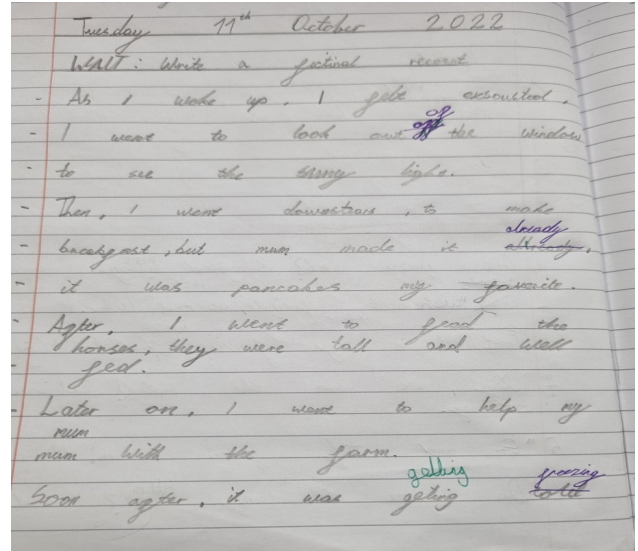 Tuesday 11th October 2022
WALT: Write a fictinal recount
- As I woke up, I felt exsousted.
- I went to look out of the window
- to see the sunny light.
- Then, I went downstairs, to make
- breakfast, but mum made it already,
- it was pancakes my favorite.
- After, I went to fead the
horses, they were tall and well
- fed.
- Later on, I went to help my
mum
mum with the farm.
Soon after, it was geting getting freezing